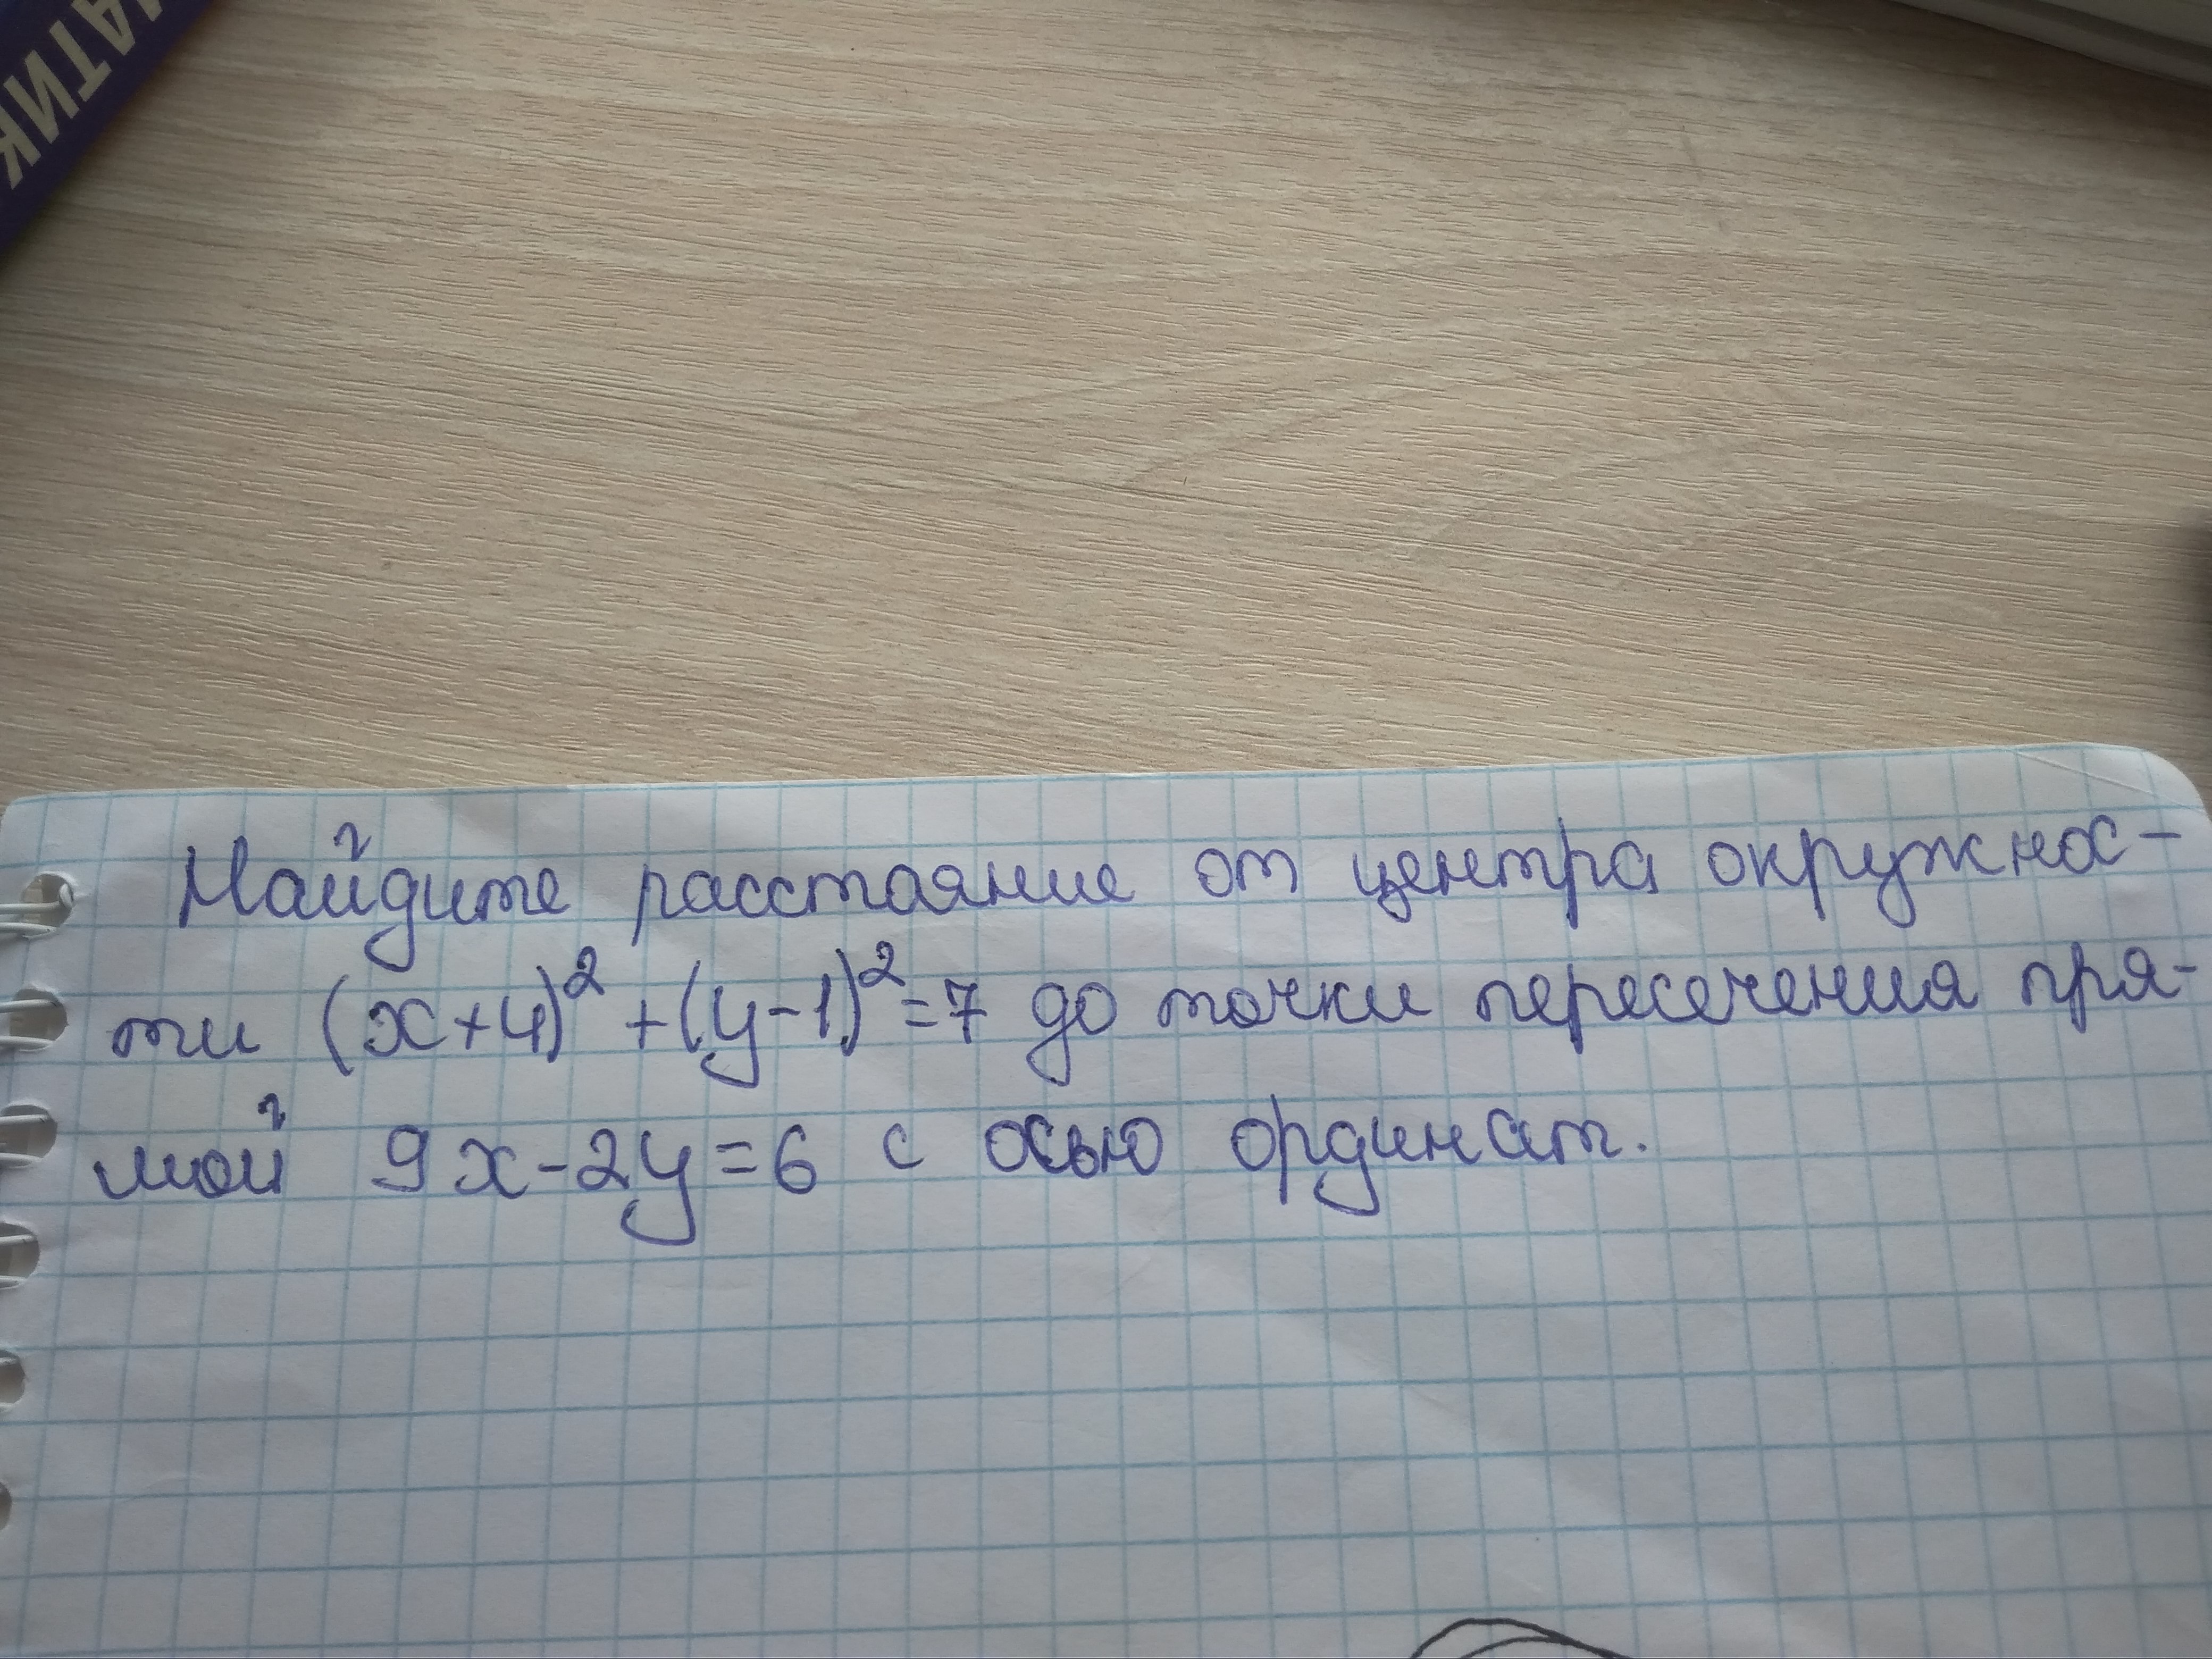 МАТИК
Найдите расстояние от центра окружнос-
ти (x+4)²+(y-1)²=7 до точки пересечения пря-
мой 9x-2y=6 с осью ординат.